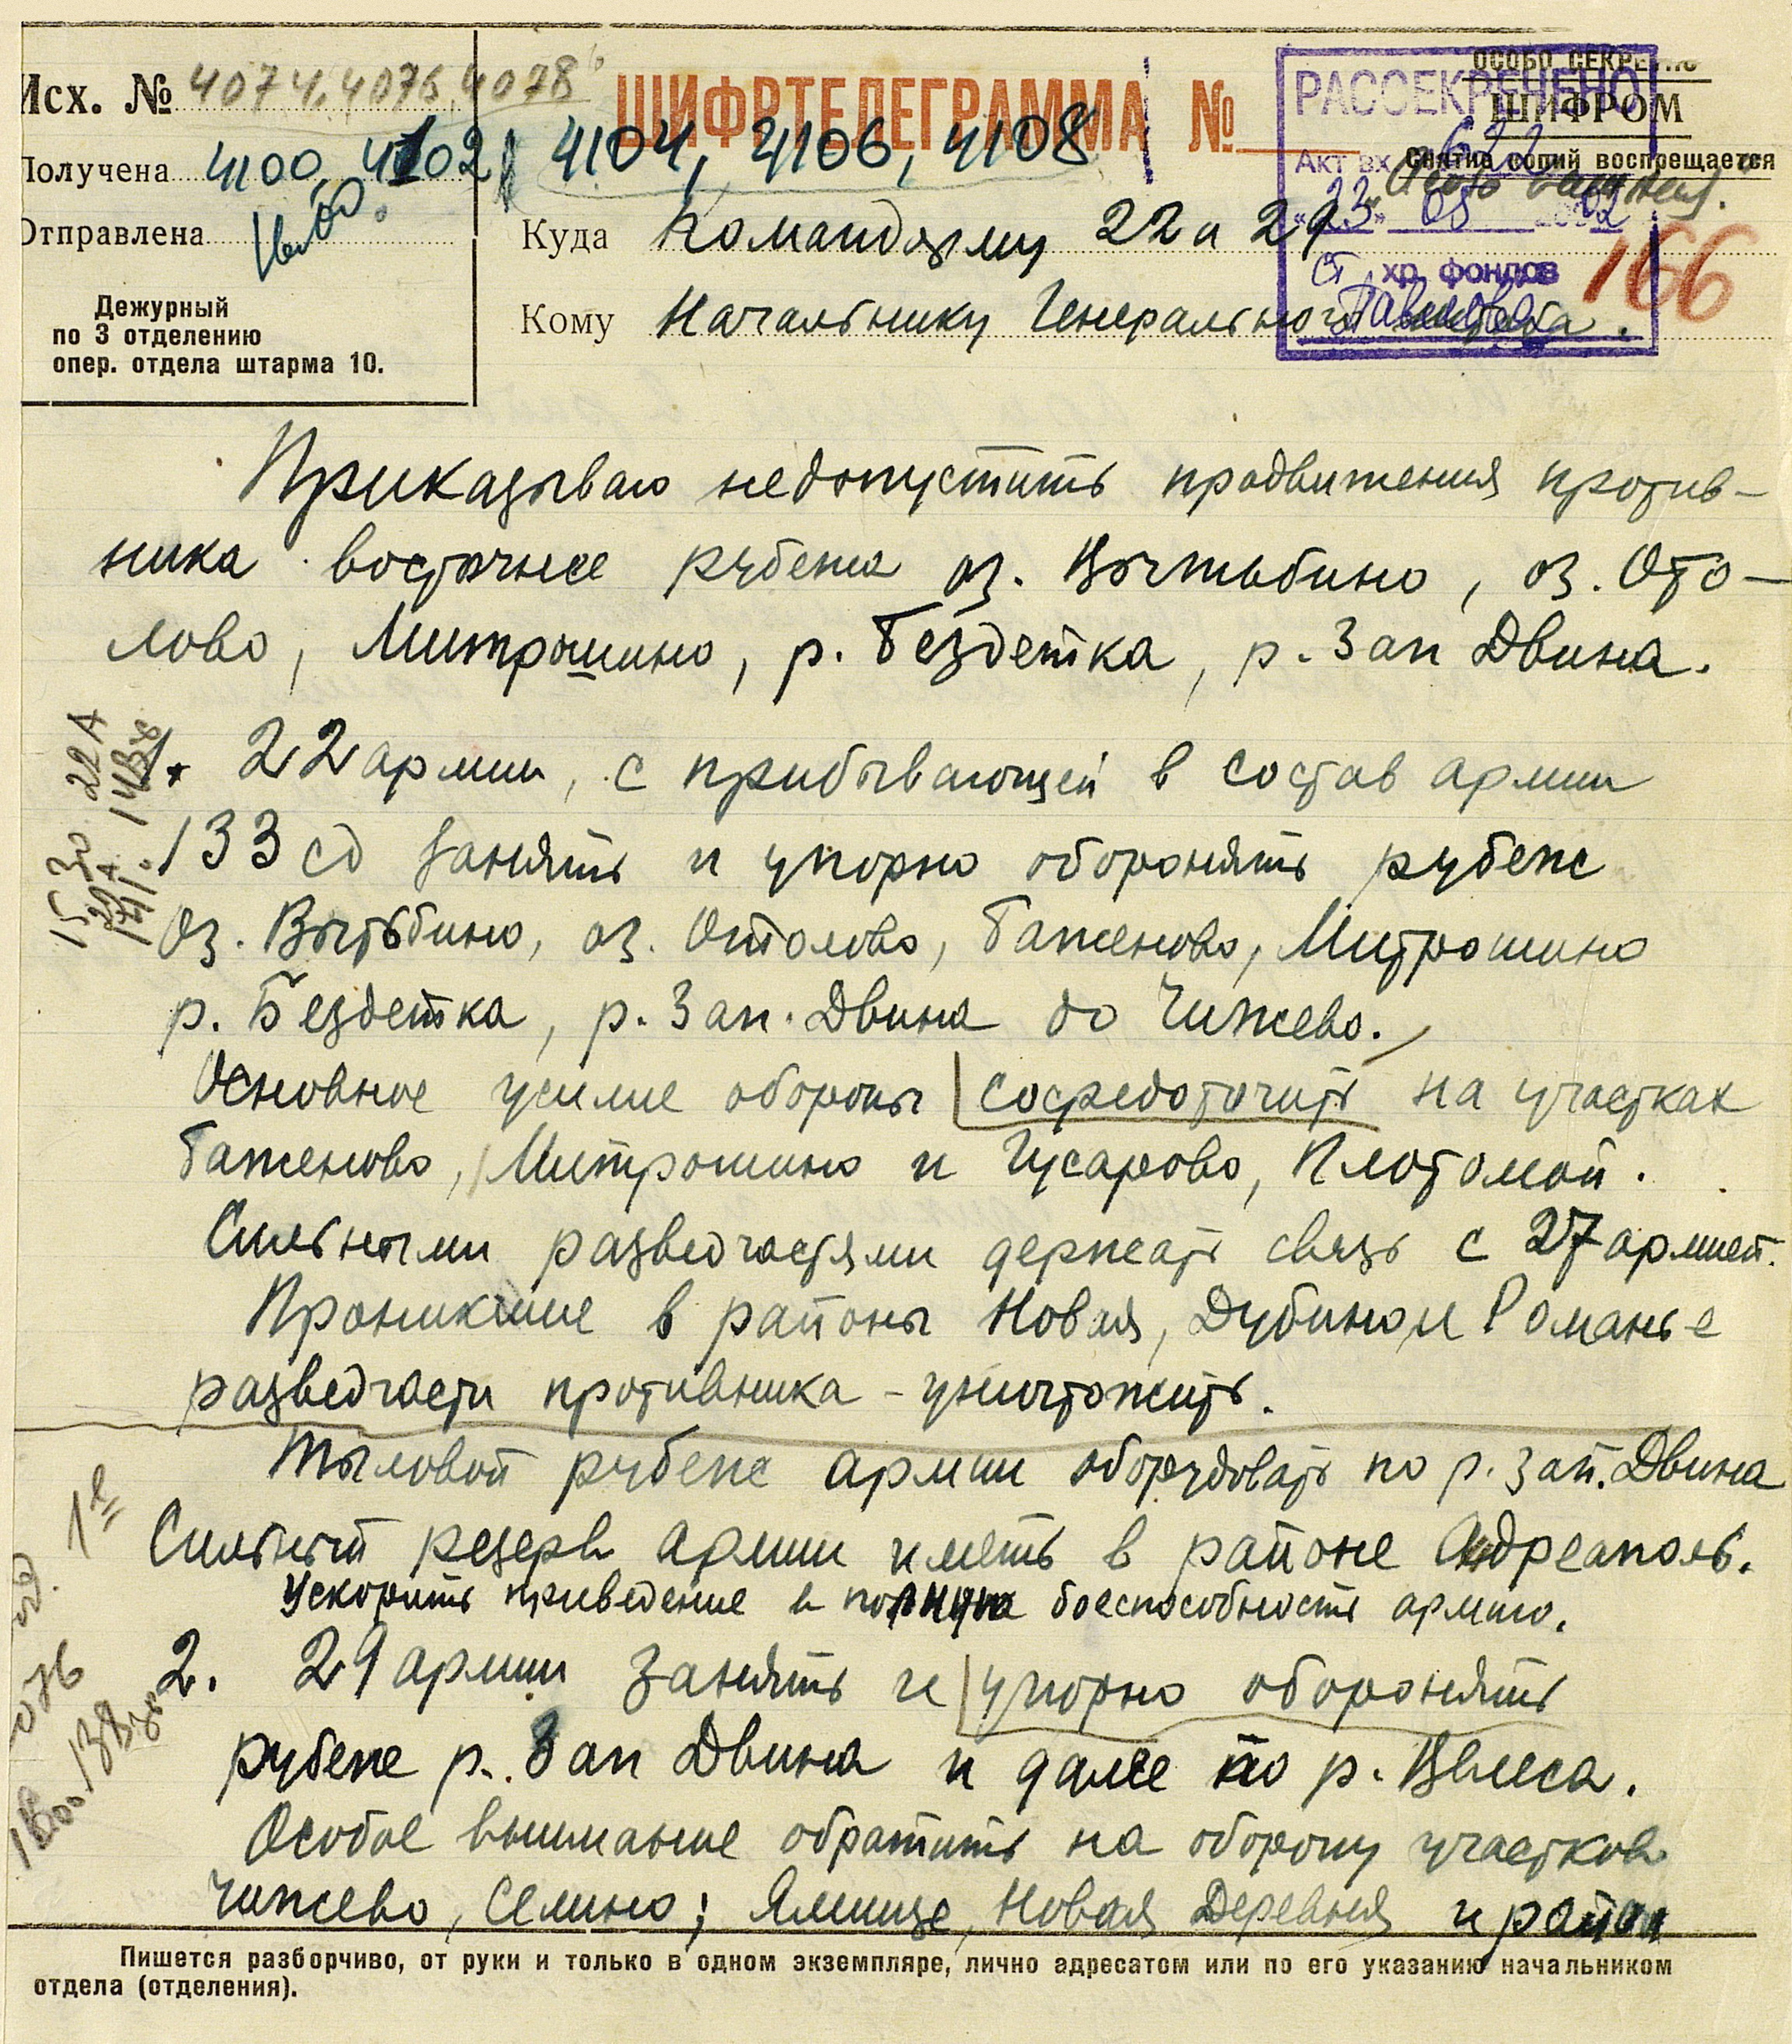 Исх. № 4074, 4076, 4078
ШИФРТЕЛЕГРАММА №
ОСОБО СЕКРЕТНО
ШИФРОМ
Снятие копий воспрещается
РАССЕКРЕЧЕНО
Акт вх 622
"23" 05 2002
Ст. хр. фондов
Получена 4100, 4102, 4104, 4106, 4108
Отправлена
Куда Командарму 22 и 29
166
Кому Начальнику Генерального штаба.
Дежурный
по 3 отделению
опер. отдела штарма 10.
Приказываю недопустить продвижения против-
ника восточнее рубежа оз. Вытьбино, оз. Ото-
лово, Митрошино, р. Бездетка, р. Зап Двина.
1. 22 армии, с прибывающей в состав армии
133 сд занять и упорно оборонять рубеж
Оз. Вытьбино, оз. Отолово, Баженово, Митрошино
р. Бездетка, р. Зап. Двина до Чижево.
Основное усилие обороны сосредоточить на участках
Баженово, Митрошино и Гусарово, Плотомой.
Сильными разведчастями держать связь с 27 армией.
Проникшие в районы Новая, Дубино и Романье
разведчасти противника - уничтожить.
Тыловой рубеж армии оборудовать по р. Зап. Двина
Сильный резерв армии иметь в районе Андреаполь.
Ускорить приведение в полную боеспособность армию.
2. 29 армии занять и упорно оборонять
рубеж р. Зап Двина и далее по р. Велеса.
Особое внимание обратить на оборону участков
Чижево, Селино; Ямище, Новая Деревня и район
15 30 22 А
Пишется разборчиво, от руки и только в одном экземпляре, лично адресатом или по его указанию начальником
отдела (отделения).